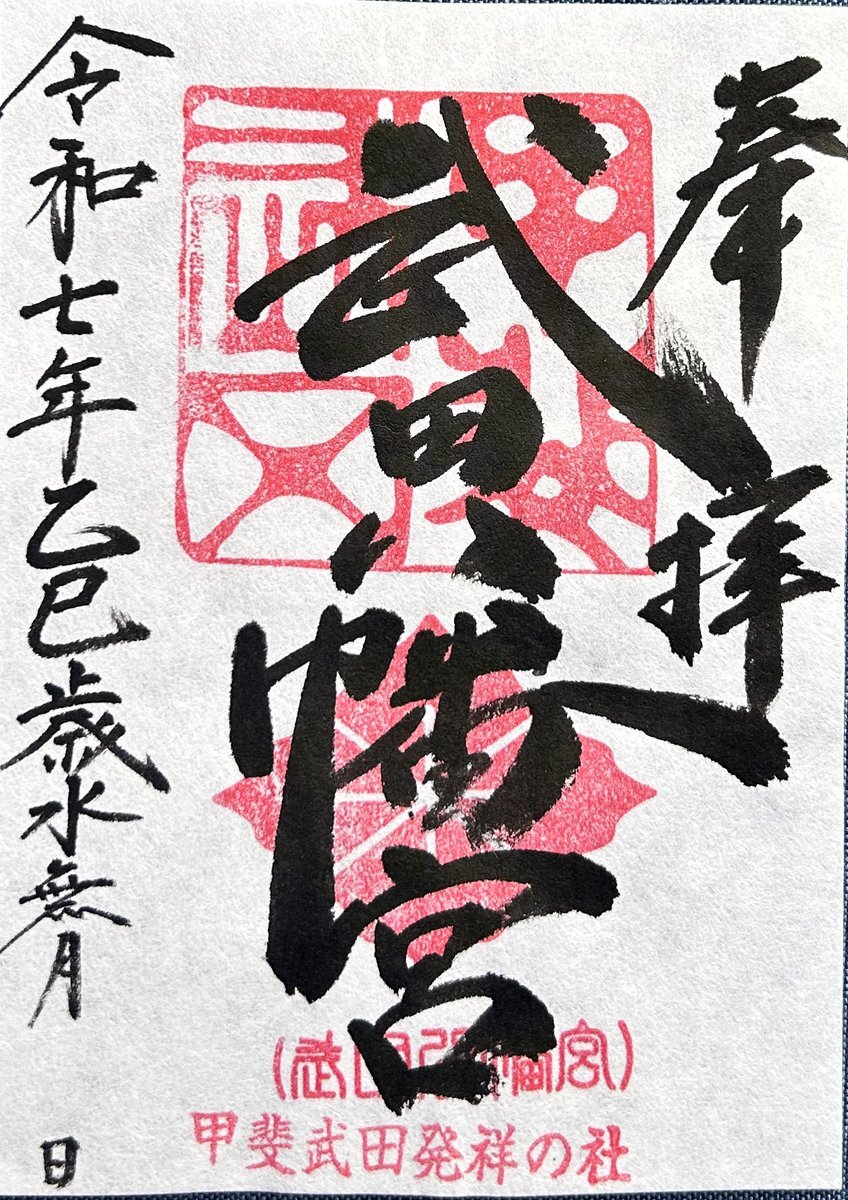 奉拝
武田八幡宮
令和七年乙巳歳水無月 日
(武田八幡宮)
甲斐武田発祥の社